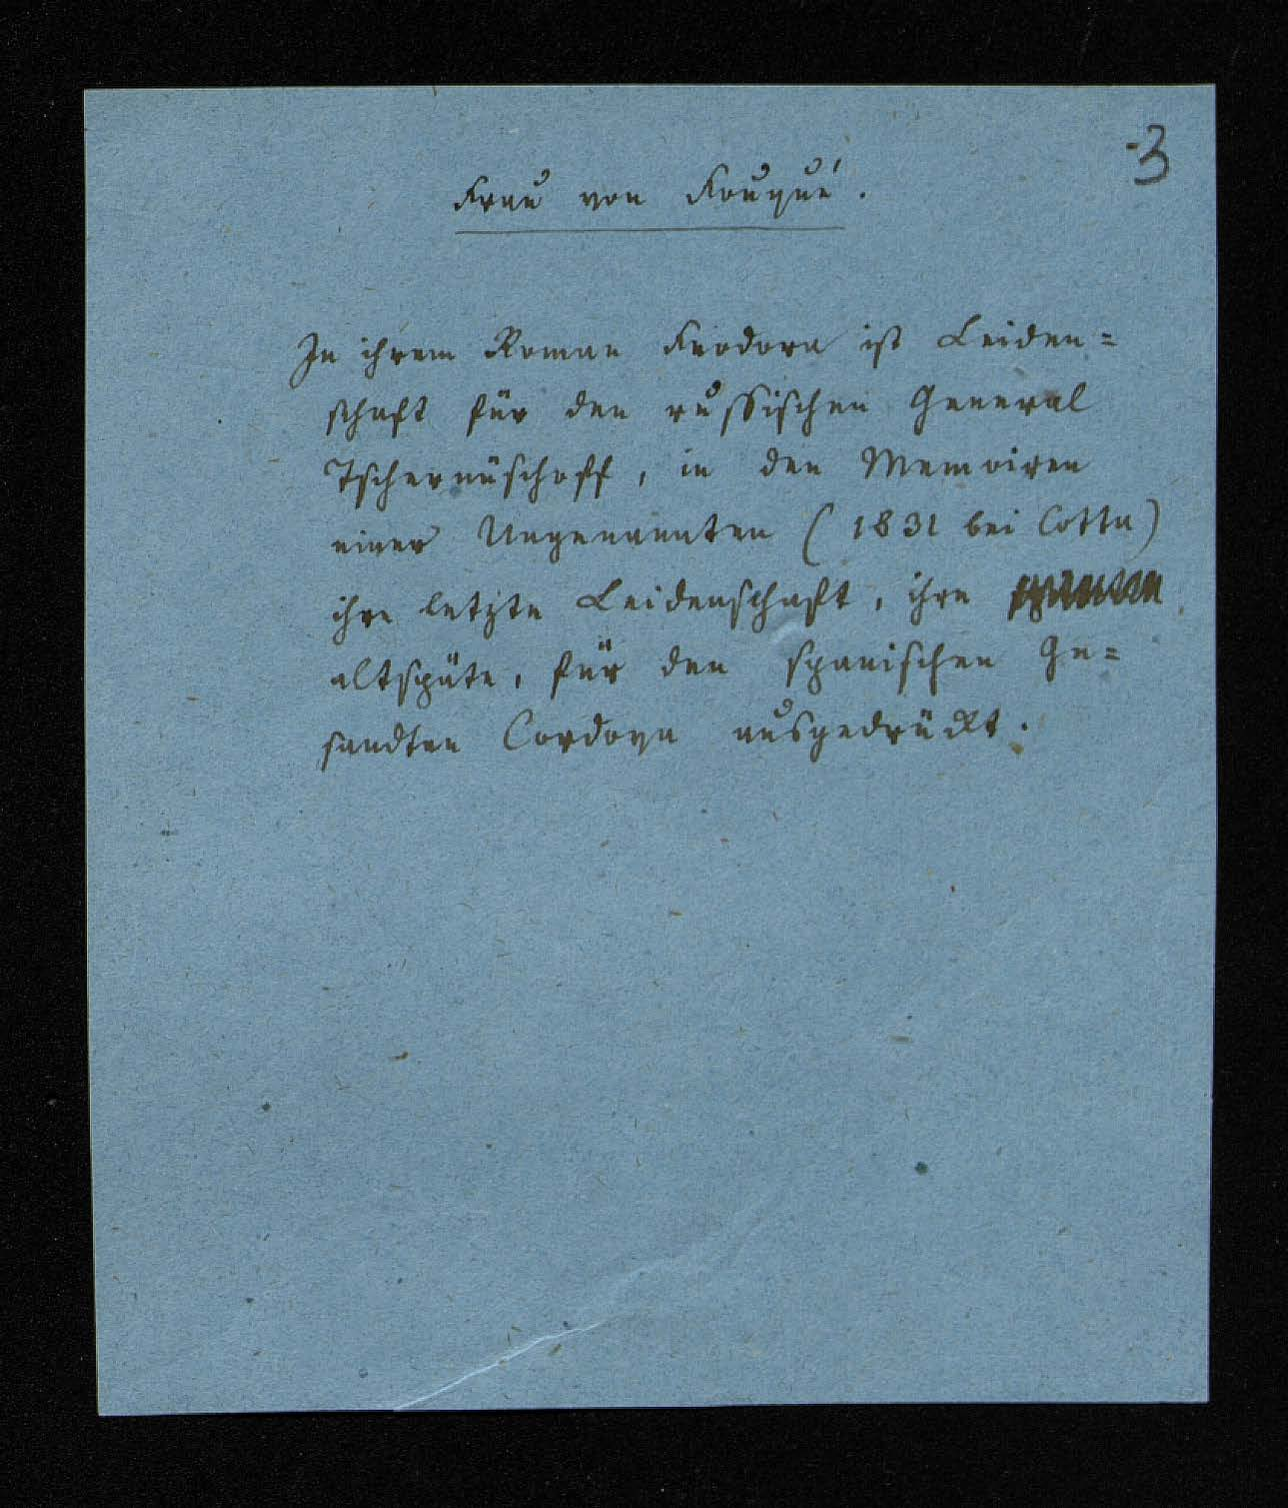 3
Frau von Fouqué.
In ihrem Roman Feodora ist Leiden=
schaft für den russischen General
Tschernüschoff, in den Memoiren
einer Ungenannten (1831 bei Cotta)
ihre letzte Leidenschaft, ihre
altspäte, für den spanischen Ge=
sandten Cordova ausgedrückt.